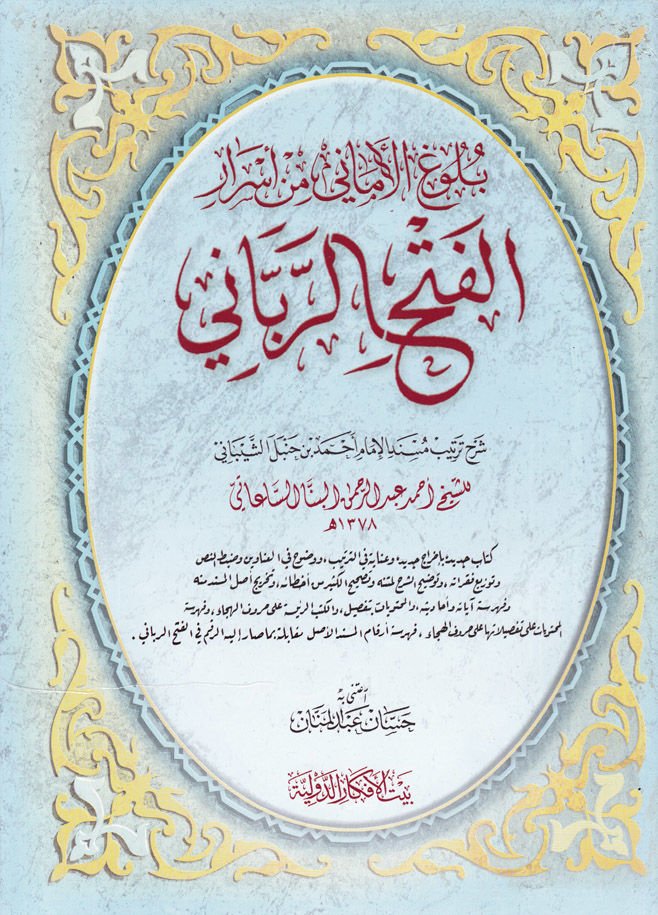 بُلُوغ الأَمَانِي مِنْ أَسْرَارِ
الفَتْحِ الرَّبَّانِي
شرح ترتيب مسند الإمام أحمد بن حنبل الشيباني
للشيخ أحمد عبد الرحمن البنا الساعاتي
١٣٧٨هـ
كتاب جديد بإخراج جديد، وعناية في الترتيب، ووضوح في العناوين وضبط النص
وتوزيع فقراته، وتوضيح الشرح لمتنه وتصحيح الكثير من أخطائه، وتخريج أصل المسند منه
وفهرسة آياته وأحاديثه، والمحتويات بتفصيل، والكتب الرئيسة على حروف الهجاء، وفهرسة
المحتويات على تفصيلاتها على حروف الهجاء، فهرسة أرقام المسند الأصل مقابلة بما صار إليه الرقم في الفتح الرباني.
اعتنى به
حسان عبد المنان
بيت الأفكار الدولية